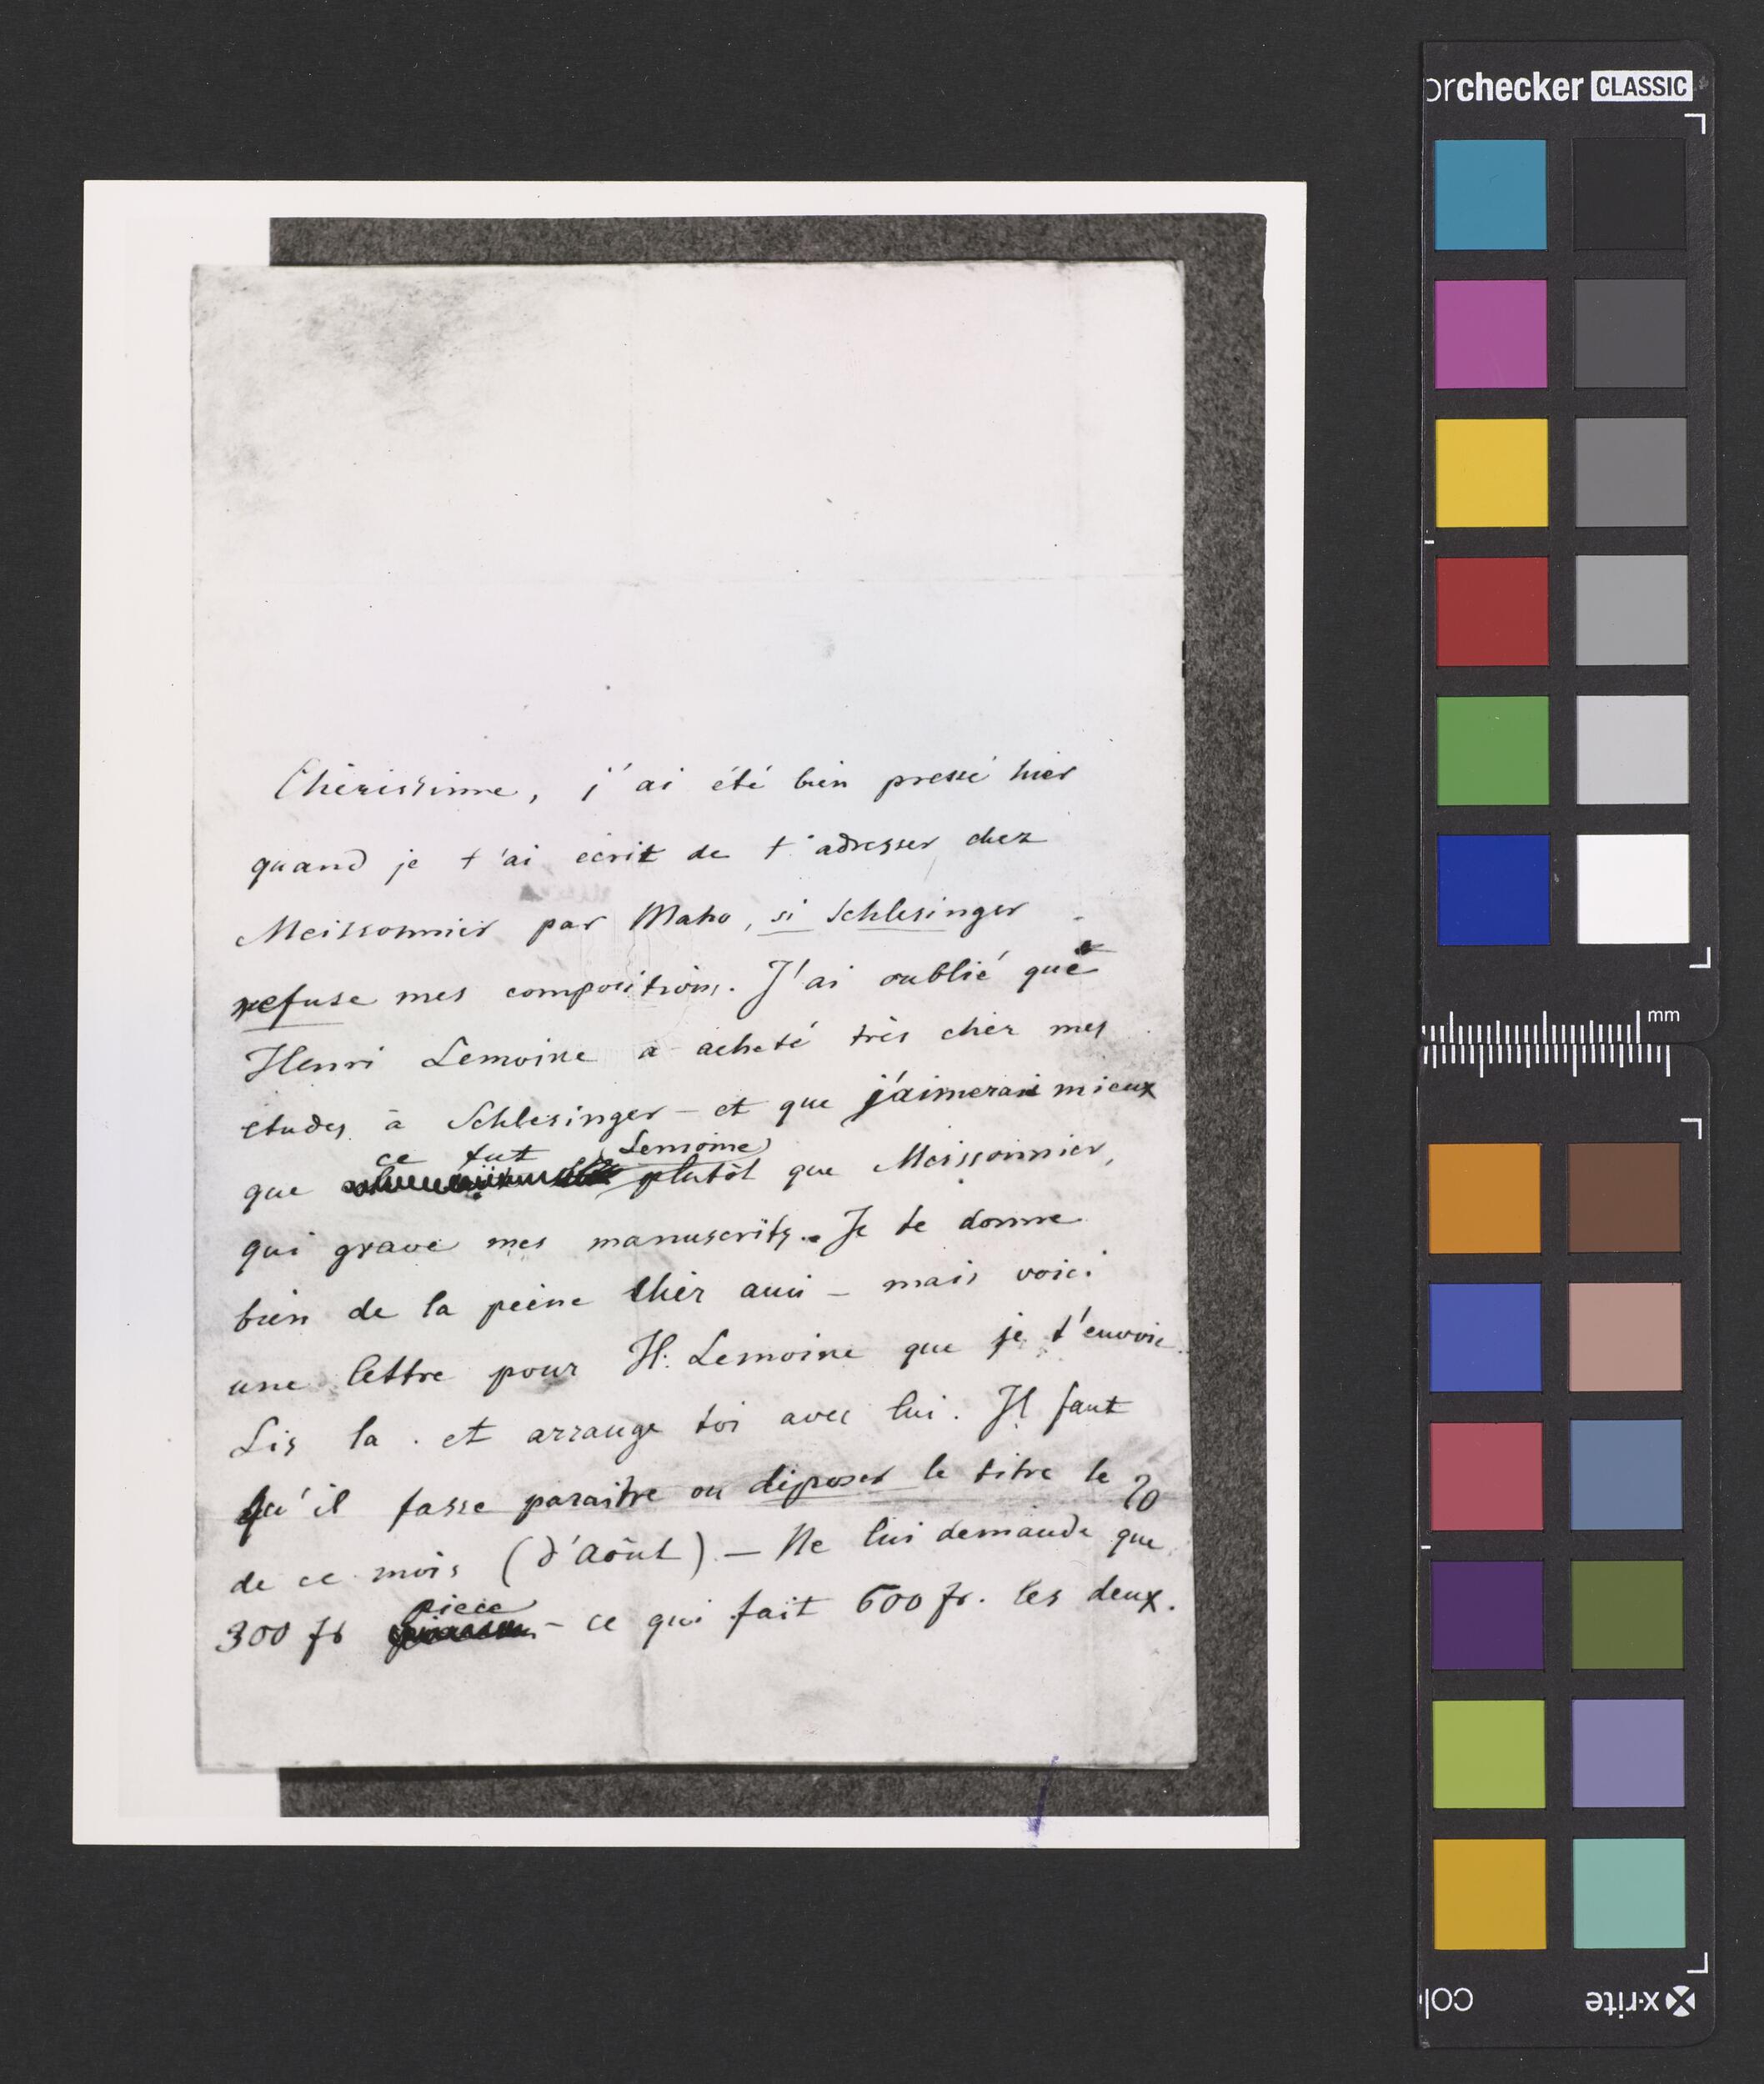 Chérissime, j'ai été bien pressé hier
quand je t'ai écrit de t'adresser chez
Meissonnier par Maho, si Schlesinger
refuse mes compositions. J'ai oublié que
Henri Lemoine a acheté très cher mes
études à Schlesinger – et que j'aimerais mieux
ce fut (Lemoine)
que plutôt que Meissonnier,
qui grave mes manuscrits. Je te donne
bien de la peine cher ami – mais voici
une lettre pour H. Lemoine que je t'envoie.
Lis la. et arrange toi avec lui. Il faut
qu'il fasse paraître ou déposer le titre le 20
de ce mois (d'Août) – Ne lui demande que
piece
300 fr – ce qui fait 600 fr. les deux.
orchecker CLASSIC
mm
x-rite
col